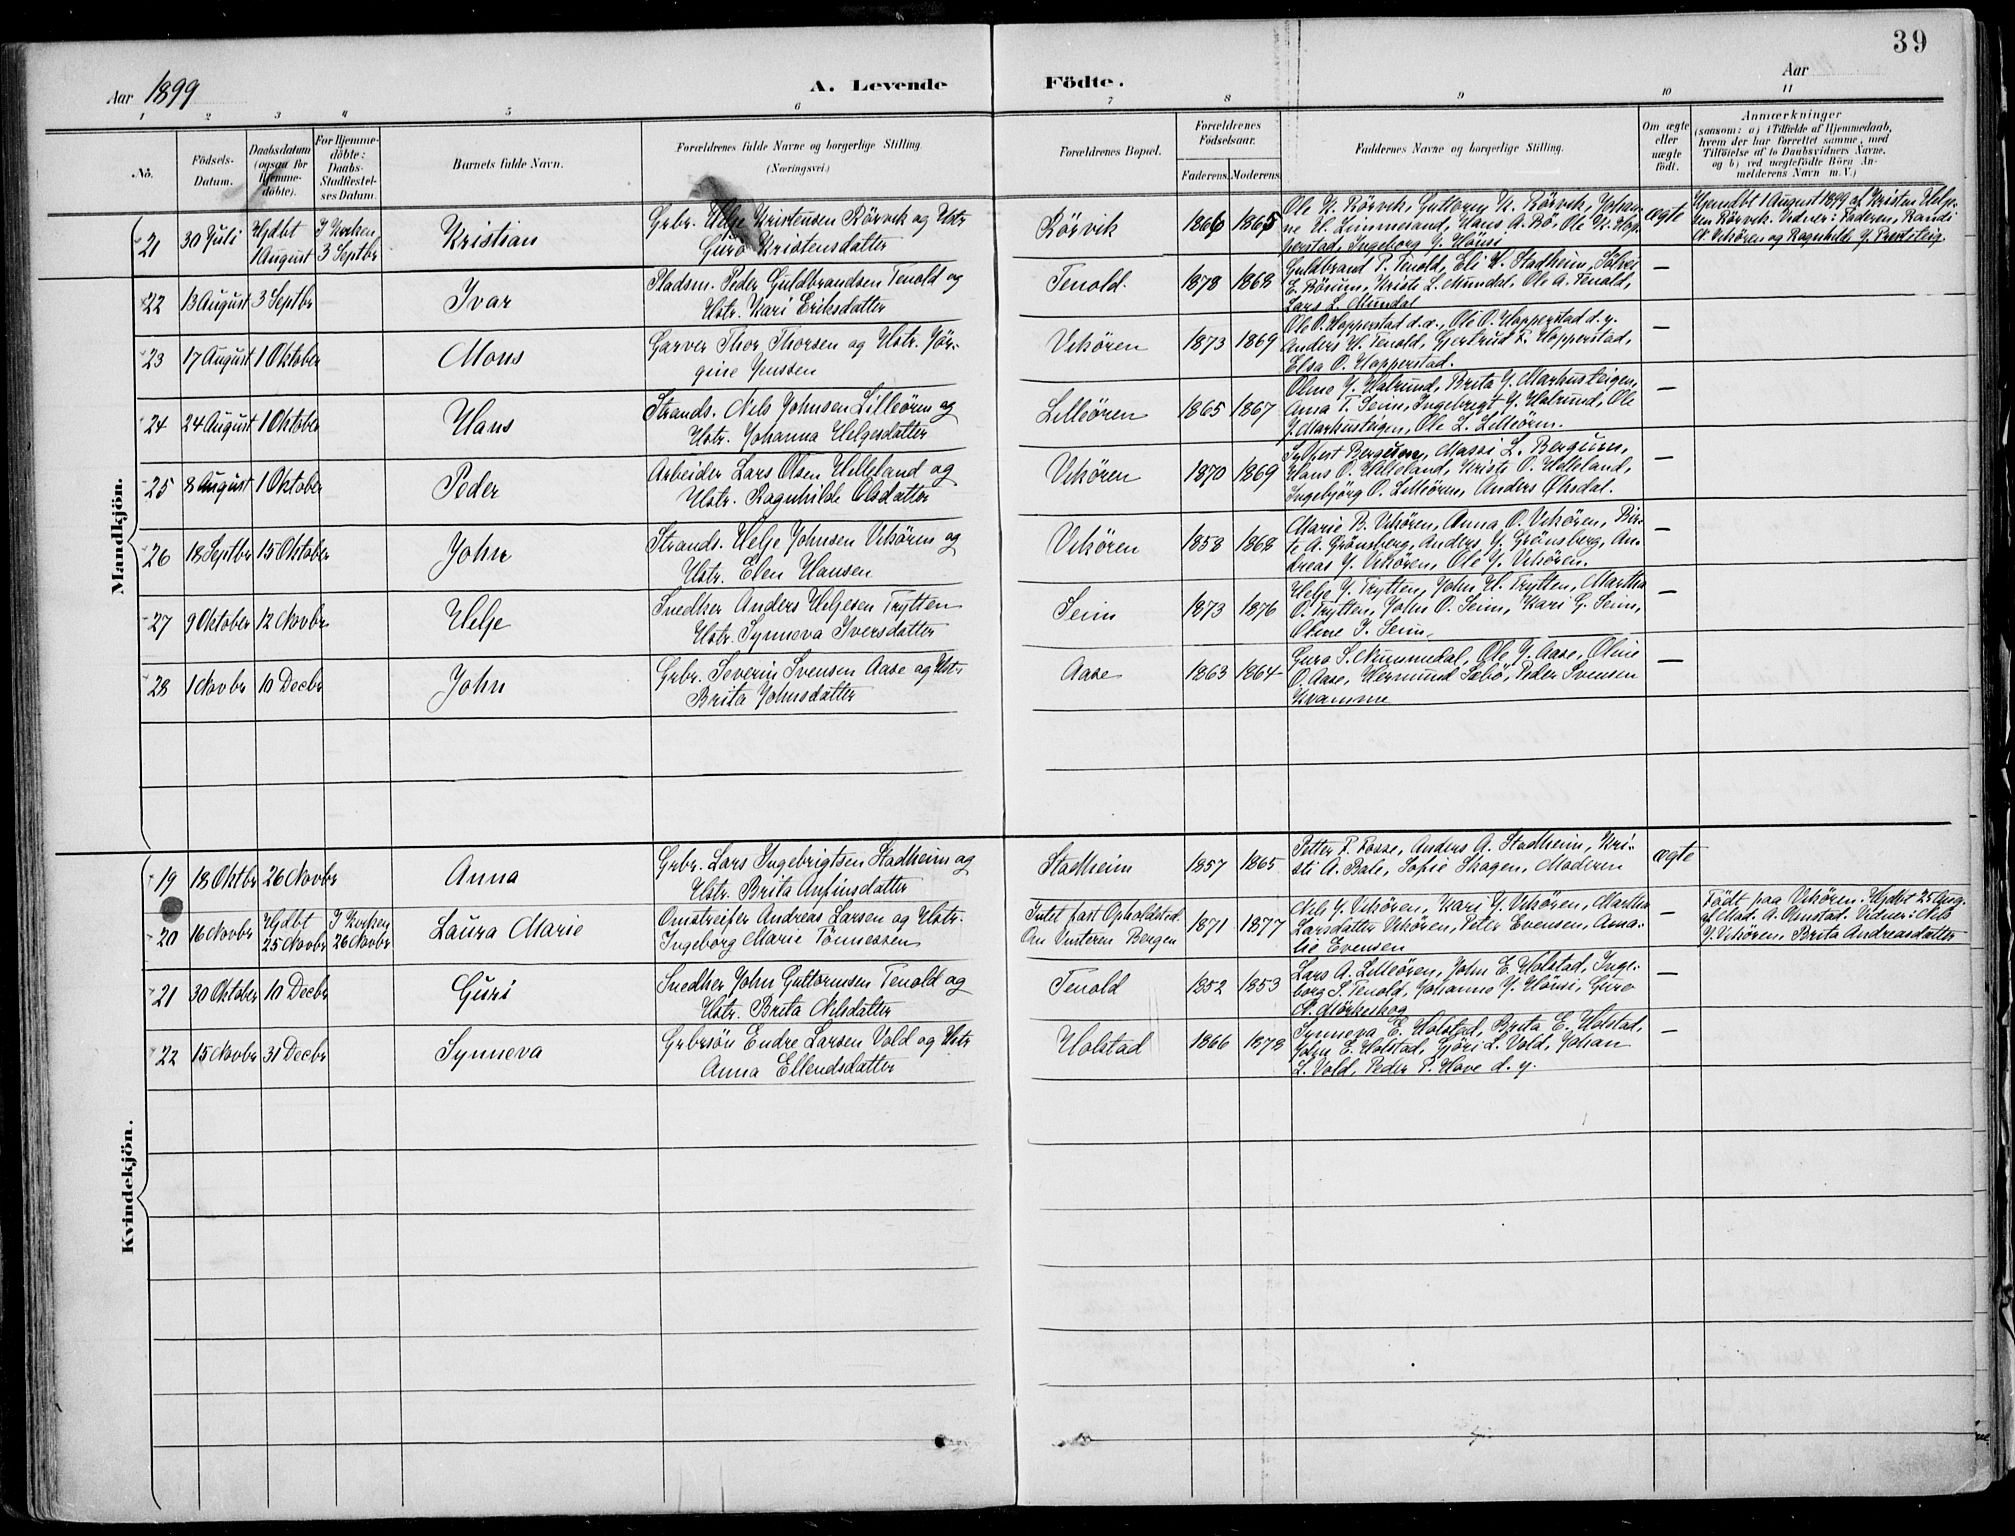 39
Aar 1899
A. Levende Födte.
Aar
1 2 3 4 5 6 7 8 9 10 11
No.
Födsels-Datum.
Daabsdatum (ogsaa for Hjemme-döbte).
For Hjemme-döbte: Daabs-Stadfæstel-ses Datum.
Barnets fulde Navn.
Forældrenes fulde Navne og borgerlige Stilling. (Næringsvei.)
Forældrenes Bopæl.
Forældrenes Födselsaar.
Faderens. Moderens.
Faddernes Navne og borgerlige Stilling.
Om ægte eller uægte födt.
Anmærkninger
(saasom: a) i Tilfælde af Hjemmedaab,
hvem der har forrettet samme, med
Tilföielse af to Daabsvidners Navne.
og b) ved uægtefödte Börn An-
melderens Navn m. V.)
Mandkjön.
21 30 Juli Hjdbt 1 August I Kirken 3 Septbr Kristian
Grbr. Helje Kristensen Rörvik og Hstr
Guro Kristensdatter
Rörvik 1866 1865
Ole K. Rörvik, Guttorm K. Rörvik, Johan-
ne H. Limmesand, Hans A. Bö, Ole K. Hop-
perstad, Ingeborg J. Hönsi
ægte
Hjemdbt 1 August 1899 af Kristen Helje-
sen Rörvik. Vidner: Faderen, Randi
N. Vikören og Ragnhilde J. Presteig.
22 13 August 3 Septbr Ivar
Pladsm. Peder Guldbrandsen Tenold og
Hstr. Kari Eriksdatter
Tenold. 1878 1868
Guldbrand P. Tenold, Eli K. Stadheim, Sölvei
E. Börum, Kristi L. Mundal, Ole A. Tenold,
Lars L. Mundal
—
23 17 August 1 Oktober Mons
Garver Thor Thorsen og Hstr. Jör-
gine Jenssen
Vikören 1873 1869
Ole O. Hopperstad d.æ., Ole O. Hopperstad d.y.
Anders H. Tenold, Gjertrud T. Hopperstad,
Elsa O. Hopperstad.
—
24 24 August 1 Oktober Hans
Strands. Nils Johnsen Lilleören og
Hstr. Johanna Helgesdatter
Lilleören 1865 1867
Oline J. Halrund, Brita J. Markusteigen,
Anna T. Seim, Ingebrigt J. Halrund, Ole
J. Markusteigen, Ole L. Lilleören.
—
25 8 August 1 Oktober Peder
Arbeider Lars Olsen Helleland og
Hstr. Ragnhilde Olsdatter
Vikören 1870 1869
Sjvert Bergum, Massi L. Bergum,
Hans O. Helleland, Kristi O. Helleland,
Ingebjörg O. Lilleören, Anders Öksdal.
—
26 18 Septbr 15 Oktober John
Strands. Helje Johnsen Vikören og
Hstr. Elen Hansen
Vikören 1858 1868
Marie B. Vikören, Anna O. Vikören, Bri-
te A. Grönsberg, Anders J. Grönsberg, An-
dreas J. Vikören, Ole J. Vikören.
—
27 9 Oktober 12 Novbr Helje
Snedker Anders Heljesen Trytten
Hstr. Synneva Iversdatter
Seim 1873 1876
Helje J. Trytten, John H. Trytten, Martha
O. Trytten, John O. Seim, Kari G. Seim,
Oline I. Seim.
—
28 1 Novbr 10 Decbr John
Grbr. Severin Svensen Aase og Hstr
Brita Johnsdatter
Aase 1863 1864
Guro S. Nummedal, Ole J. Aase, Oline
O. Aase, Hermund Sæbö, Peder Svensen
Kvamme
—
Kvindekjön.
19 18 Oktbr 26 Novbr Anna
Grbr. Lars Ingebrigtsen Stadheim og
Hstr. Brita Anfinsdatter
Stadheim 1857 1865
Petter P. Fosse, Anders A. Stadheim, Kri-
sti A. Bale, Sofie Skagen, Moderen
ægte
20 16 Novbr Hjdbt 25 Novbr I Kirken 26 Novbr Laura Marie
Omstreifer Andreas Larsen og Hstr.
Ingeborg Marie Tönnessen
Intet fast Opholdsted.
Om Vinteren Bergen
1871 1877
Nils J. Vikören, Kari J. Vikören, Martha
Larsdatter Vikören, Peter Evensen, Ama-
lie Evensen
—
Födt paa Vikören. Hjdbt 25 Aug.
af Mad. A. Omstad. Vidner: Nils
J. Vikören, Brita Andreasdatter
21 30 Oktober 10 Decbr Guri
Snedker John Guttormsen Tenold og
Hstr. Brita Nilsdatter
Tenold 1852 1853
Lars A. Lilleören, John E. Holstad, Inge-
borg S. Tenold, Johanne J. Hönsi, Guro
N. Mörkeskog
—
22 15 Novbr 31 Decbr Synneva
Grbrsön Endre Larsen Vold og Hstr
Anna Ellendsdatter
Holstad 1866 1878
Synneva E. Holstad, Brita E. Holstad,
John E. Holstad, Gjöri L. Vold, Johan
L. Vold, Peder P. Hove d. y.
—